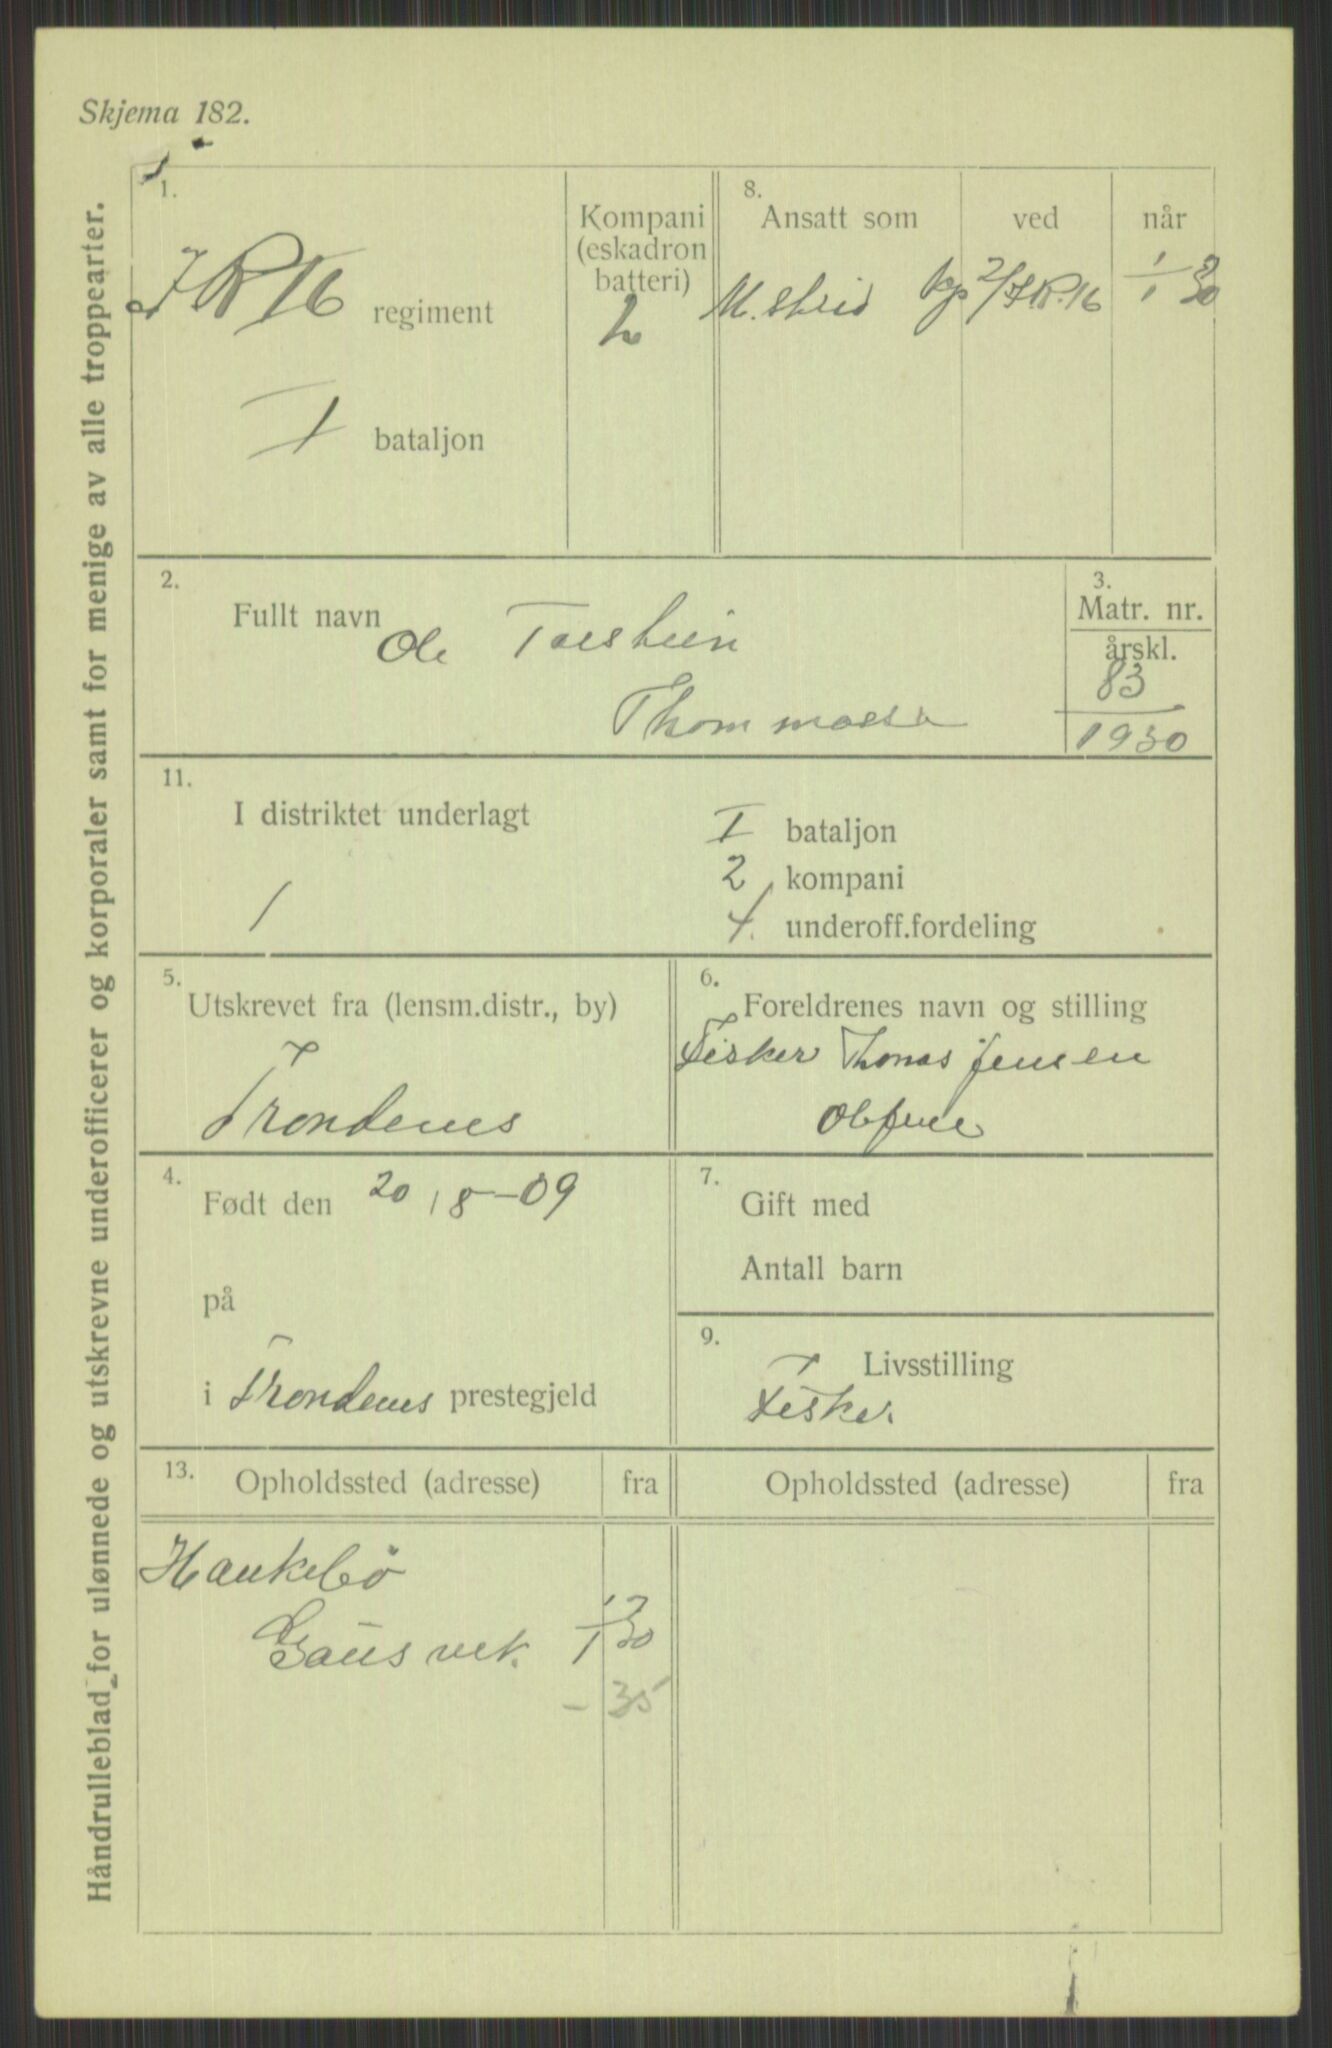 Skjema 182.
Håndrulleblad for ulønnede og utskrevne underofficerer og korporaler samt for menige av alle troppearter.
1.
IR 16 regiment
I bataljon
Kompani
(eskadron
batteri)
2
8.
Ansatt som
ved
når
M. strid
kp 2/I.R.16
1/1 30
2.
Fullt navn
Ole Torstein
Thommassen
3.
Matr. nr.
årskl.
83
1930
11.
I distriktet underlagt
1
I bataljon
2 kompani
4. underoff.fordeling
5.
Utskrevet fra (lensm.distr., by)
Trondenes
6.
Foreldrenes navn og stilling
Fisker Thomas Jensen
4.
Født den 20/8-09
på
i Trondenes prestegjeld
7.
Gift med
Antall barn
9.
Livsstilling
Fisker
13.
Opholdssted (adresse)
fra
Opholdssted (adresse)
fra
Haukebø
Gausvik. 1/1 30
- 35